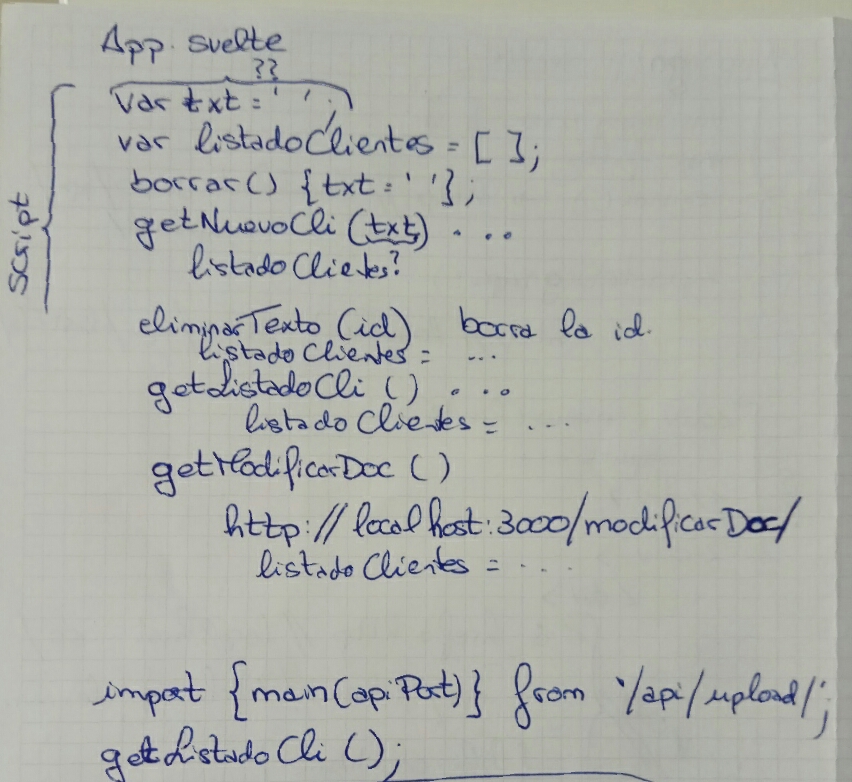 App. svelte
??
var txt = ' ';
var listadoClientes = [ ];
borrar() {txt = ' '};
getNuevoCli (txt) . . .
listadoClietes?
Script
eliminarTexto (id) borra la id.
listadoClientes = ...
getListadoCli () . . .
listadoClientes = ....
getModificarDoc ()
http://localhost:3000/modificarDoc/
listadoClientes = ....
import {main(apiPort)} from '/api/upload/';
getListadoCli ();